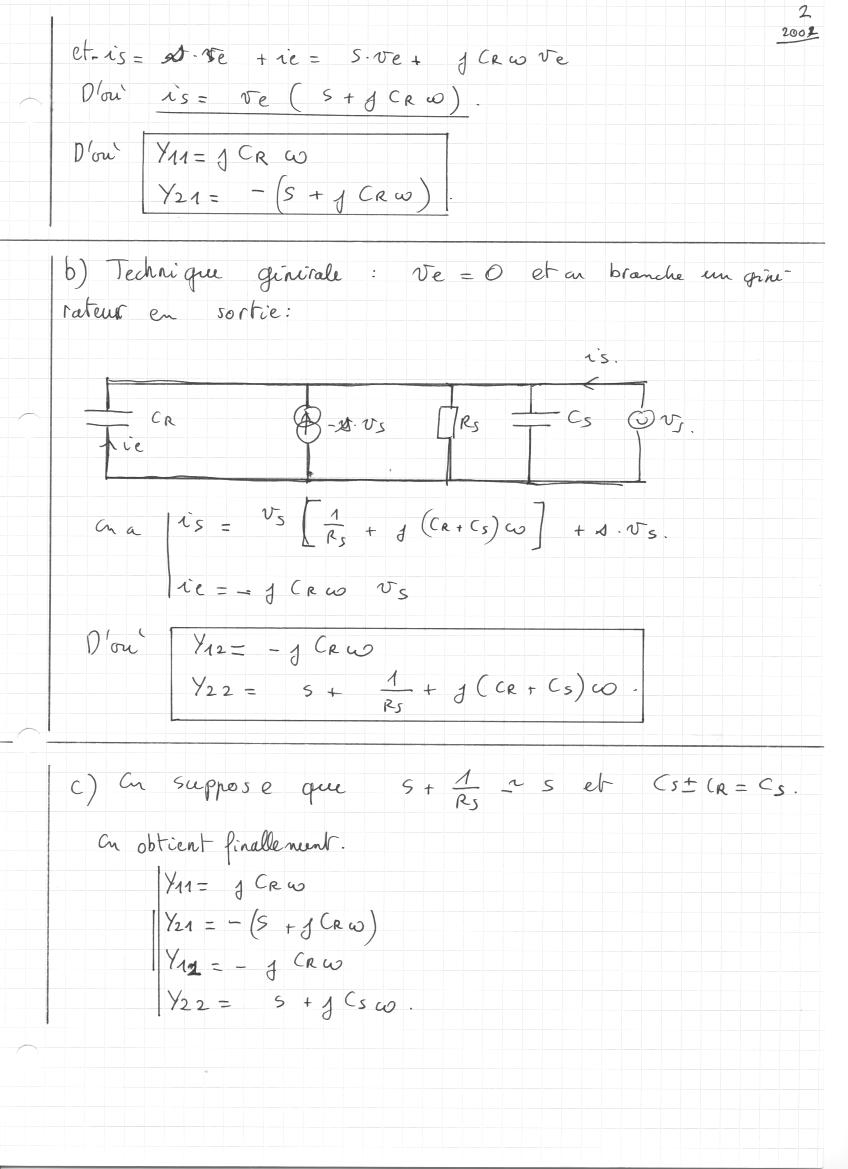 2
2002
et is = s.ve + ie = s.ve + j CR ω ve
D'où is = ve ( s + j CR ω ) .
D'où Y11 = j CR ω
Y21 = - (s + j CR ω) .
b) Technique générale : ve = 0 et on branche un géné-
rateur en sortie :
is.
CR
ie
-s. vs
Rs
Cs
vs.
On a is = vs [ 1/Rs + j (CR + Cs) ω ] + s. vs.
ie = - j CR ω vs
D'où Y12 = - j CR ω
Y22 = s + 1/Rs + j ( CR + Cs) ω .
c) On suppose que s + 1/Rs ≃ s et Cs ± CR = Cs.
On obtient finallement.
Y11 = j CR ω
Y21 = - (s + j CR ω)
Y12 = - j CR ω
Y22 = s + j Cs ω .